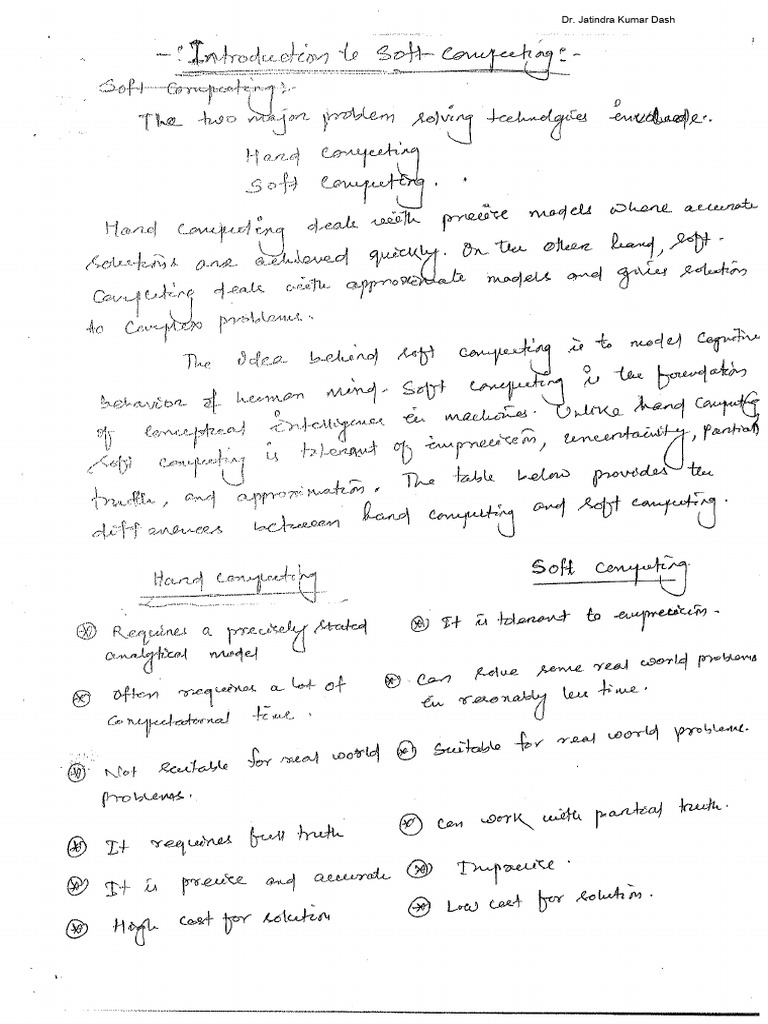 Dr. Jatindra Kumar Dash
-: Introduction to Soft computing:-
Soft Computing:-
The two major problem solving technologies include:.
Hard computing
Soft Computing.
Hard Computing deals with precise models where accurate
solutions are achieved quickly. On the other hand, soft-
computing deals with approximate models and gives solution
to complex problems.
The idea behind soft computing is to model cognitive
behavior of human mind. Soft computing is the foundation
of conceptual intelligence in machines. Unlike hand computing
soft computing is tolerant of imprecision, uncertainity, partial
truth, and approximation. The table below provides the
differences between hard computing and soft computing.
Hard computing
Soft computing
Requires a precisely stated
analytical model
It is tolerant to imprecision.
Often requires a lot of
computational time.
Can solve some real world problems
in resonably less time.
Not suitable for real world
problems.
Suitable for real world problems.
It requires full truth
Can work with partial truth.
It is precise and accurate
Imprecise.
High cost for solution
Low cost for solution.